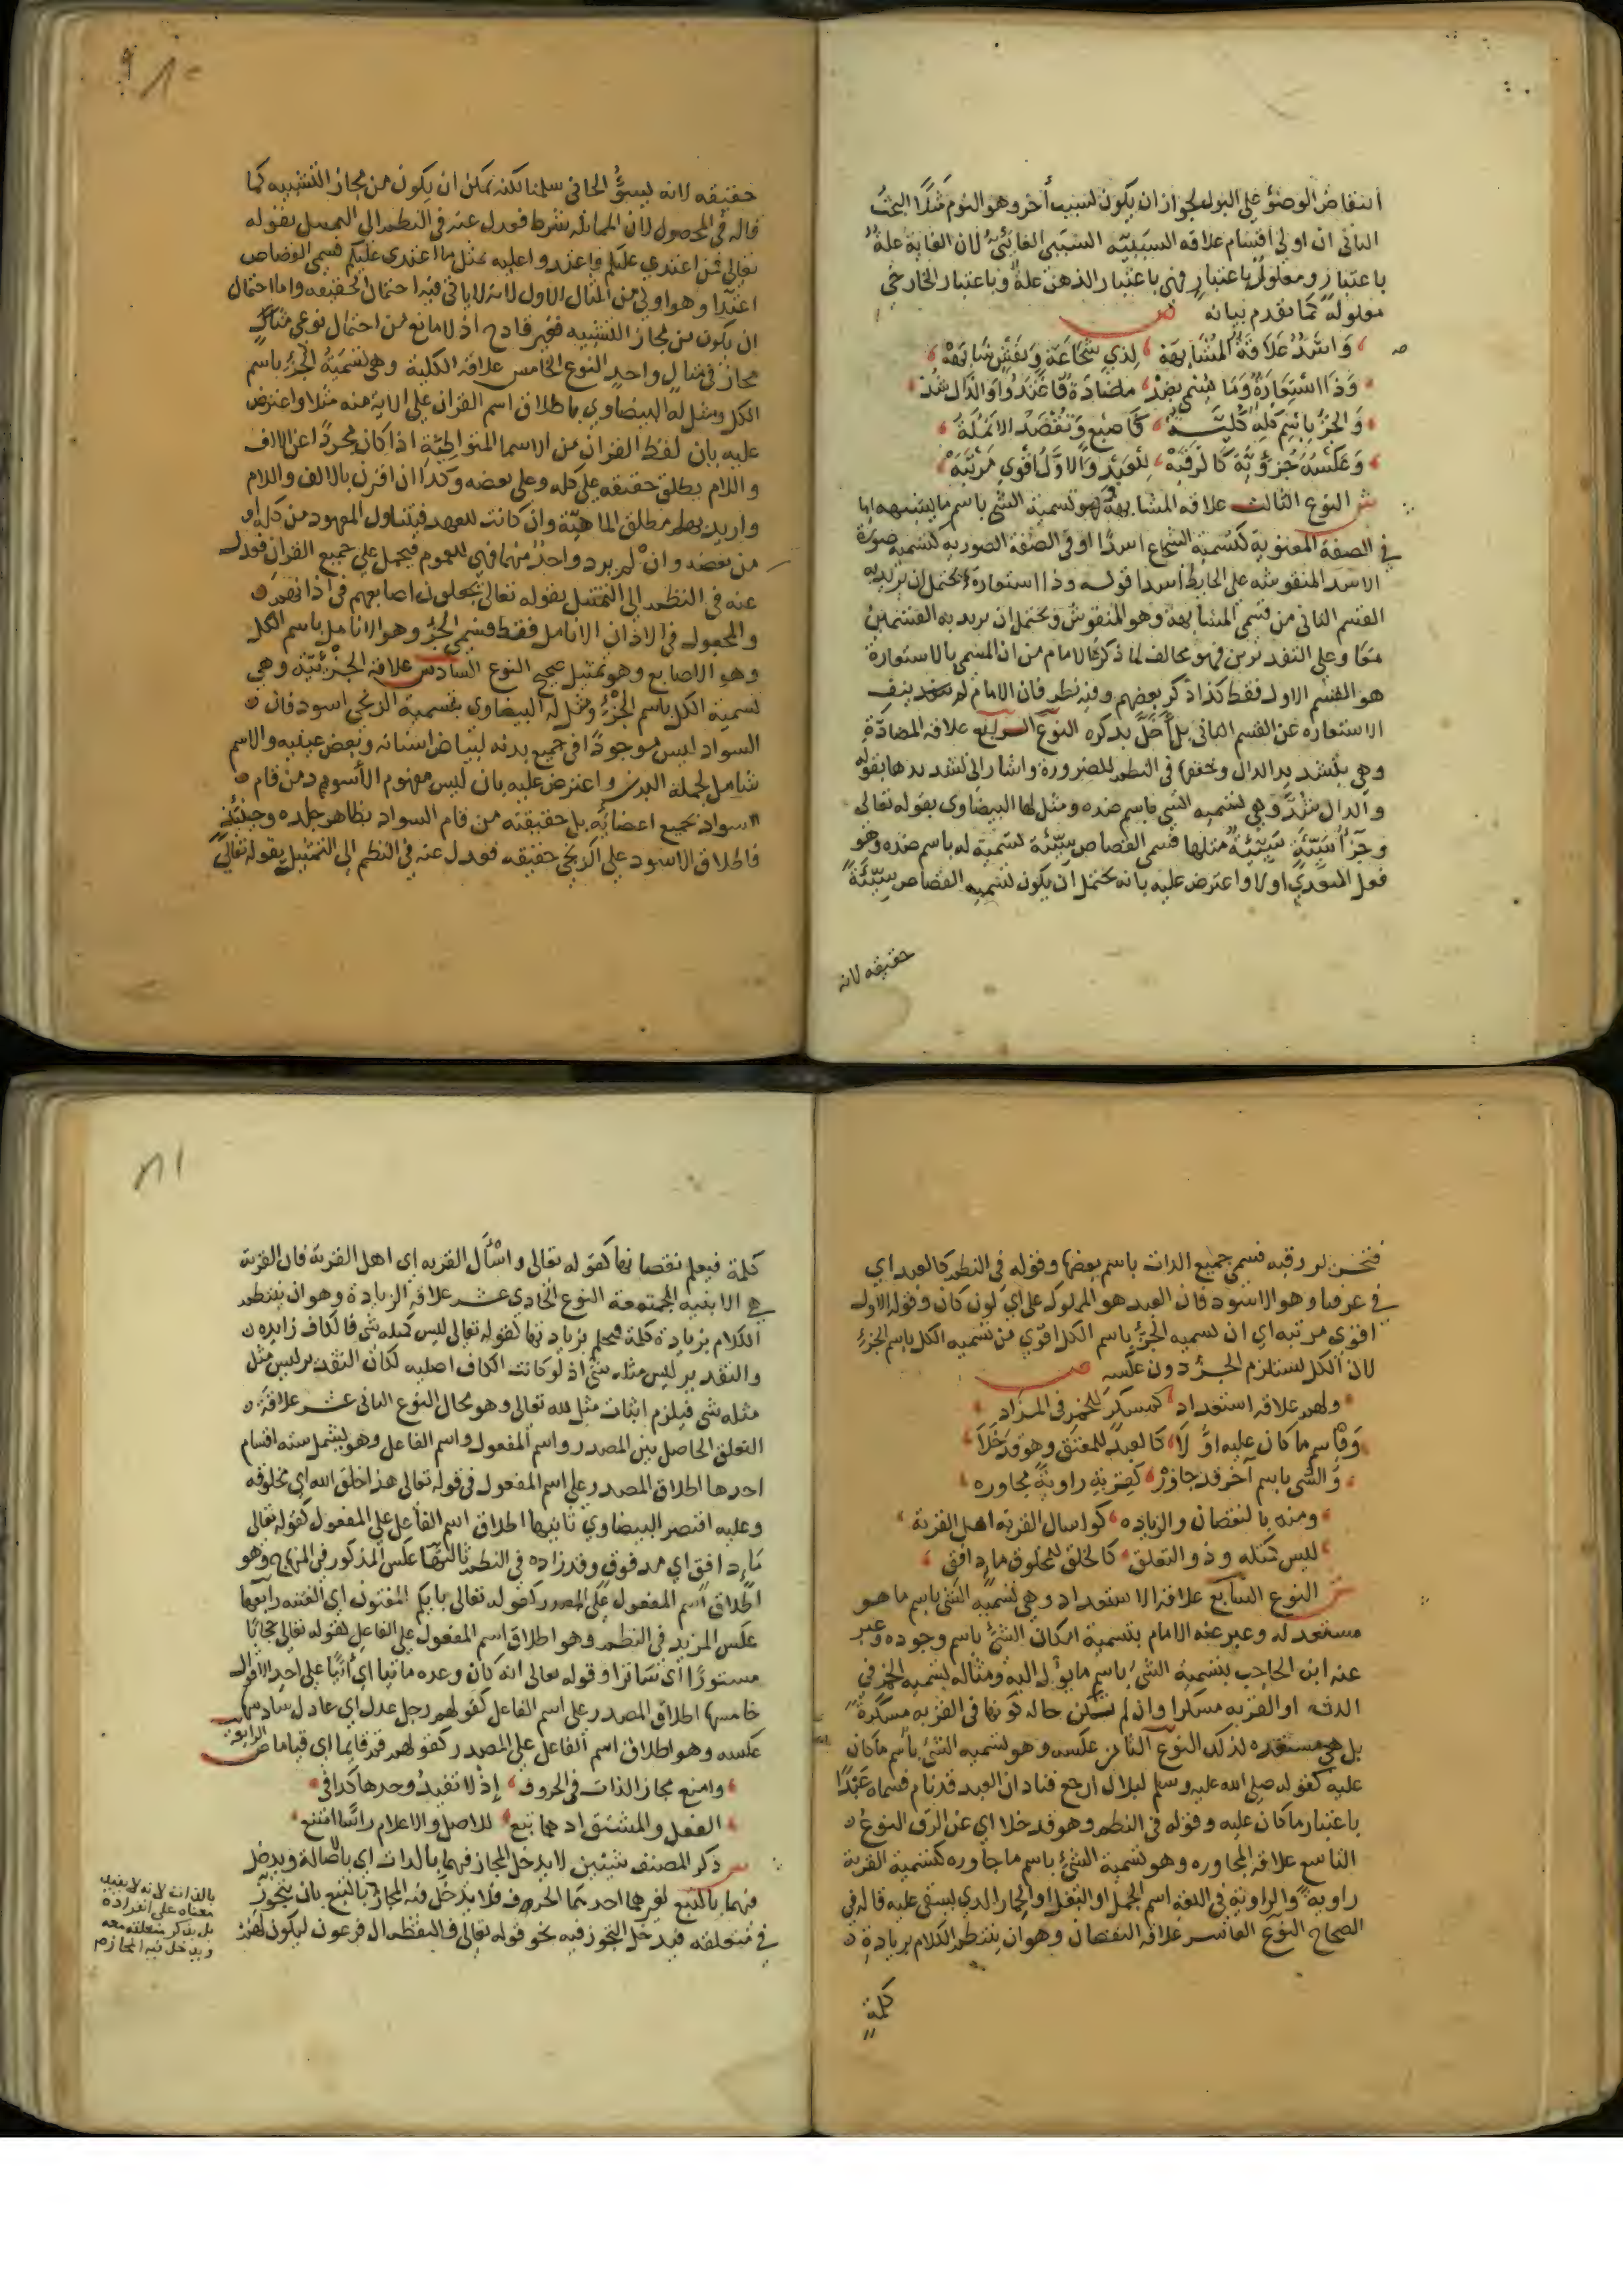 انتقاض الوضؤ على البول لجواز ان يكون لسبب أخر وهو النوم مثلًا البحث
الثانى ان اولى اقسام علاقه السببيّه السببى الغائيّ لان الغاية علة
باعتبار ومعلول باعتبار فهى باعتبار الذهن علة وباعتبار الخارجى
معلوله كما تقدم بيانه ص
وَاسْدُدْ عَلاقَةُ المُشَابَهَة لِذِي شَجَاعَةٍ وَنَقْشٍ شَابَهَهْ
وَذَا اسْتِعَارَةٌ وَمَا سُمِّي بِضِدْ مضادة فَاعْتَدُوا وَالدَّال شُدْ
وَالجُزْ بِاسْمِ كُلِّهِ كُلِّيَّة كَاصْبع وَتُقْصَدُ الانمُلَةُ
وَعَكْسُهُ جُزْؤِيَّة كَالرَّقَبَهْ لِلْعَبْدِ وَالاوَّلُ اقْوى مَرْتَبَهْ
ش النوع الثالث علاقه المشابهة وهو تسمية الشى باسم ما يشبهه اما
فى الصفة المعنوية كتسمية الشجاع اسدًا او فى الصفة الصوريه كتسمية صورة
الاسد المنقوشه على الحايط أسدا قوله وذا استعارة يحتمل ان يريد به
القسم الثانى من قسمى المشابهة وهو المنقوش ويحتمل ان يريد به القسمين
معًا وعلى التقديرين فهو مخالف لما ذكره الامام من ان المسمى بالاستعارة
هو القسم الاول فقط كذا ذكر بعضهم وفيه نظر فان الامام لم ينف
الاستعاره عن القسم الثانى بل أخلّ بذكره النوع الرابع علاقه المضادّة
وهى بتشديد الدال وخففها فى النظم للضرورة واشار الى تشديدها بقوله
والدال شُدّ وهى تسميه الشى باسم ضده ومثل لها البيضاوى بقوله تعالى
وجزآ سَيِّئَةٍ سَيِّئَةٌ مثلها فسمى القصاص سيّئة تسمية له باسم ضده وهو
فعل المتعدى اولا واعترض عليه بانه يحتمل ان يكون تسميه القصاص سيّئةً
حقيقه لانه
حقيقه لانه يسوُّ الجانى سلمنا لكنه يمكن ان يكون من مجاز التشبيه كما
قاله فى المحصول لان المماثله شرط فعدل عنه فى النظم الى التمثيل بقوله
تعالى فمن اعتدى عليكم فاعتدوا عليه بمثل ما اعتدى عليكم فسمى القصاص
اعتدآ وهو اولى من المثال الاول لانه لا ياتى فيه احتمال الحقيقه واما احتمال
ان يكون من مجاز التشبيه فغير قادح اذ لا مانع من احتمال نوعى
مجاز فى مثال واحد النوع الخامس علاقه الكلية وهى تسميةُ الجُزْء باسم
الكل ومثل له البيضاوي باطلاق اسم القران على الاية منه مثلا واعترض
عليه بان لفظ القران من الاسما المتواطئة اذا كان مجردًا عن الالف
واللام يطلق حقيقه على كله وعلى بعضه وكذا ان اقترن بالالف واللام
واريد بها مطلق الماهيّة وان كانت للعهد فيتناول المعهود من كله او
من بعضه وان لم يرد واحد منهما فهى للعموم فيحمل على جميع القران فعدل
عنه فى النظم الى التمثيل بقوله تعالى يجعلون اصابعهم فى اذانهم
والمجعول فى الاذان الانامل فقط فسمى الجزْ وهو الانامل باسم الكل
وهو الاصابع وهو تمثيل صحيح النوع السادس علاقه الجزْئيّة وهى
تسمية الكل باسم الجزْء ومثل له البيضاوى بتسمية الزنجى اسود فان
السواد ليس موجودًا فى جميع بدنه لبياض اسنانه وبعض عينيه والاسم
شامل لجملة البدن واعترض عليه بان ليس مفهوم الأسود من قام
السواد بجميع اعضائه بل حقيقته من قام السواد بظاهر جلده وحينئذ
فاطلاق الاسود على الزنجى حقيقه فعدل عنه فى النظم الى التمثيل بقوله تعالى
فتحرير رقبه فسمى جميع الذات باسم بعضها وقوله فى النظم كالعبد اى
فى عرفنا وهو الاسود فان العبد هو المملوك على اىّ لون كان وقوله الاول
اقوى مرتبه اى ان تسميه الجزْء باسم الكل اقوى من تسميه الكل باسم الجزء
لان الكل يستلزم الجزْء دون عكسه ص
ولهم علاقه استعداد كمسكر للخمر فى المزاد
وَباسمِ ما كان عليه اوَّلَا كالعبد للمعتق وهو قد خلاَ
وَالشى باسم آخر قد جاوَرْ كقربةٍ راويةٌ مجاوره
ومنه بالنقصان والزياده كواسال القريه اهل القرية
ليس كمثله وذو التعلق كالخلق للمخلوق ما دافق
ش النوع السابع علاقة الاستعداد وهى تسميه الشى باسم ما هو
مستعد له وعبر عنه الامام بتسمية امكان الشئ باسم وجوده وعبر
عنه ابن الحاجب بتسمية الشى باسم ما يؤل اليه ومثاله تسمية الخمر فى
الدن او القربه مسكرا وان لم تكن حاله كونها فى القربه مسكرة
بل هى مستعده لذلك النوع الثامن عكسه وهو تسميه الشئ باسم ما كان
عليه كقوله صلى الله عليه وسلم لبلال ارجع فناد ان العبد قد نام فسماه عَبْدًا
باعتبار ما كان عليه وقوله فى النظم وهو قد خلا اى عن الرق النوع
التاسع علاقه المجاوره وهو تسمية الشئ باسم ما جاوره كتسمية القربة
راوية والراوية فى اللغه اسم الجمل او البغل او الحمار الذى يستقى عليه قاله فى
الصحاح النوع العاشر علاقه النقصان وهو ان ينتظم الكلام بزيادة
كلمة
كلمة فيعلم نقصانها كقوله تعالى واسْأَل القريه اى اهل القرية فان القرية
هى الابنيه المجتمعة النوع الحادى عشر علاقه الزيادة وهو ان ينتظم
الكلام بزيادة كلمة فيعلم زيادتها كقوله تعالى ليس كمثله شى فالكاف زايده
والتقدير ليس مثله شئ اذ لو كانت الكاف اصليه لكان التقدير ليس مثل
مثله شى فيلزم اثبات مثل لله تعالى وهو محال النوع الثانى عشر علاقة
التعلق الحاصل بين المصدر واسم المفعول واسم الفاعل وهو يشمل سته اقسام
احدها اطلاق المصدر على اسم المفعول فى قوله تعالى هذا خلق الله اى مخلوقه
وعليه اقتصر البيضاوي ثانيها اطلاق اسم الفاعل على المفعول كقوله تعالى
مَاء دافق اى مدفوق وقد زاده فى النظم ثالثها عكس المذكور فى المنهاج وهو
اطلاق اسم المفعول على المصدر كقوله تعالى بايكم المفتون اى الفتنه رابعها
عكس المزيد فى النظم وهو اطلاق اسم المفعول على الفاعل كقوله تعالى حجابًا
مستورًا اى ساترا وقوله تعالى انه كان وعده ماتيا اى اتيًا على احد الاقوال
خامسها اطلاق المصدر على اسم الفاعل كقولهم رجل عدل اى عادل سادسها
عكسه وهو اطلاق اسم الفاعل على المصدر كقولهم قم قايما اى قياما ص
وامنع مجاز الذات فى الحروف إذْ لا تفيدُ وحدها كذا فى
الفعل والمشتق اذ هما تبع للاصل والاعلام راسًا امتنع
ش ذكر المصنف شيئين لا يدخل المجاز فيهما بالذات اى بالاصالة ويدخل
فيهما بالتبع لغيرهما احدهما الحرف فلا يدخل فيه المجاز بالتبع بان يتجوز
فى متعلقه فيدخل التجوز فيه نحو قوله تعالى فالتقطه ال فرعون ليكون لهم
بالذات لانه لا يفيد
معناه على انفراده
بل بذكر متعلقه معه
ويدخل فيه المجاز م